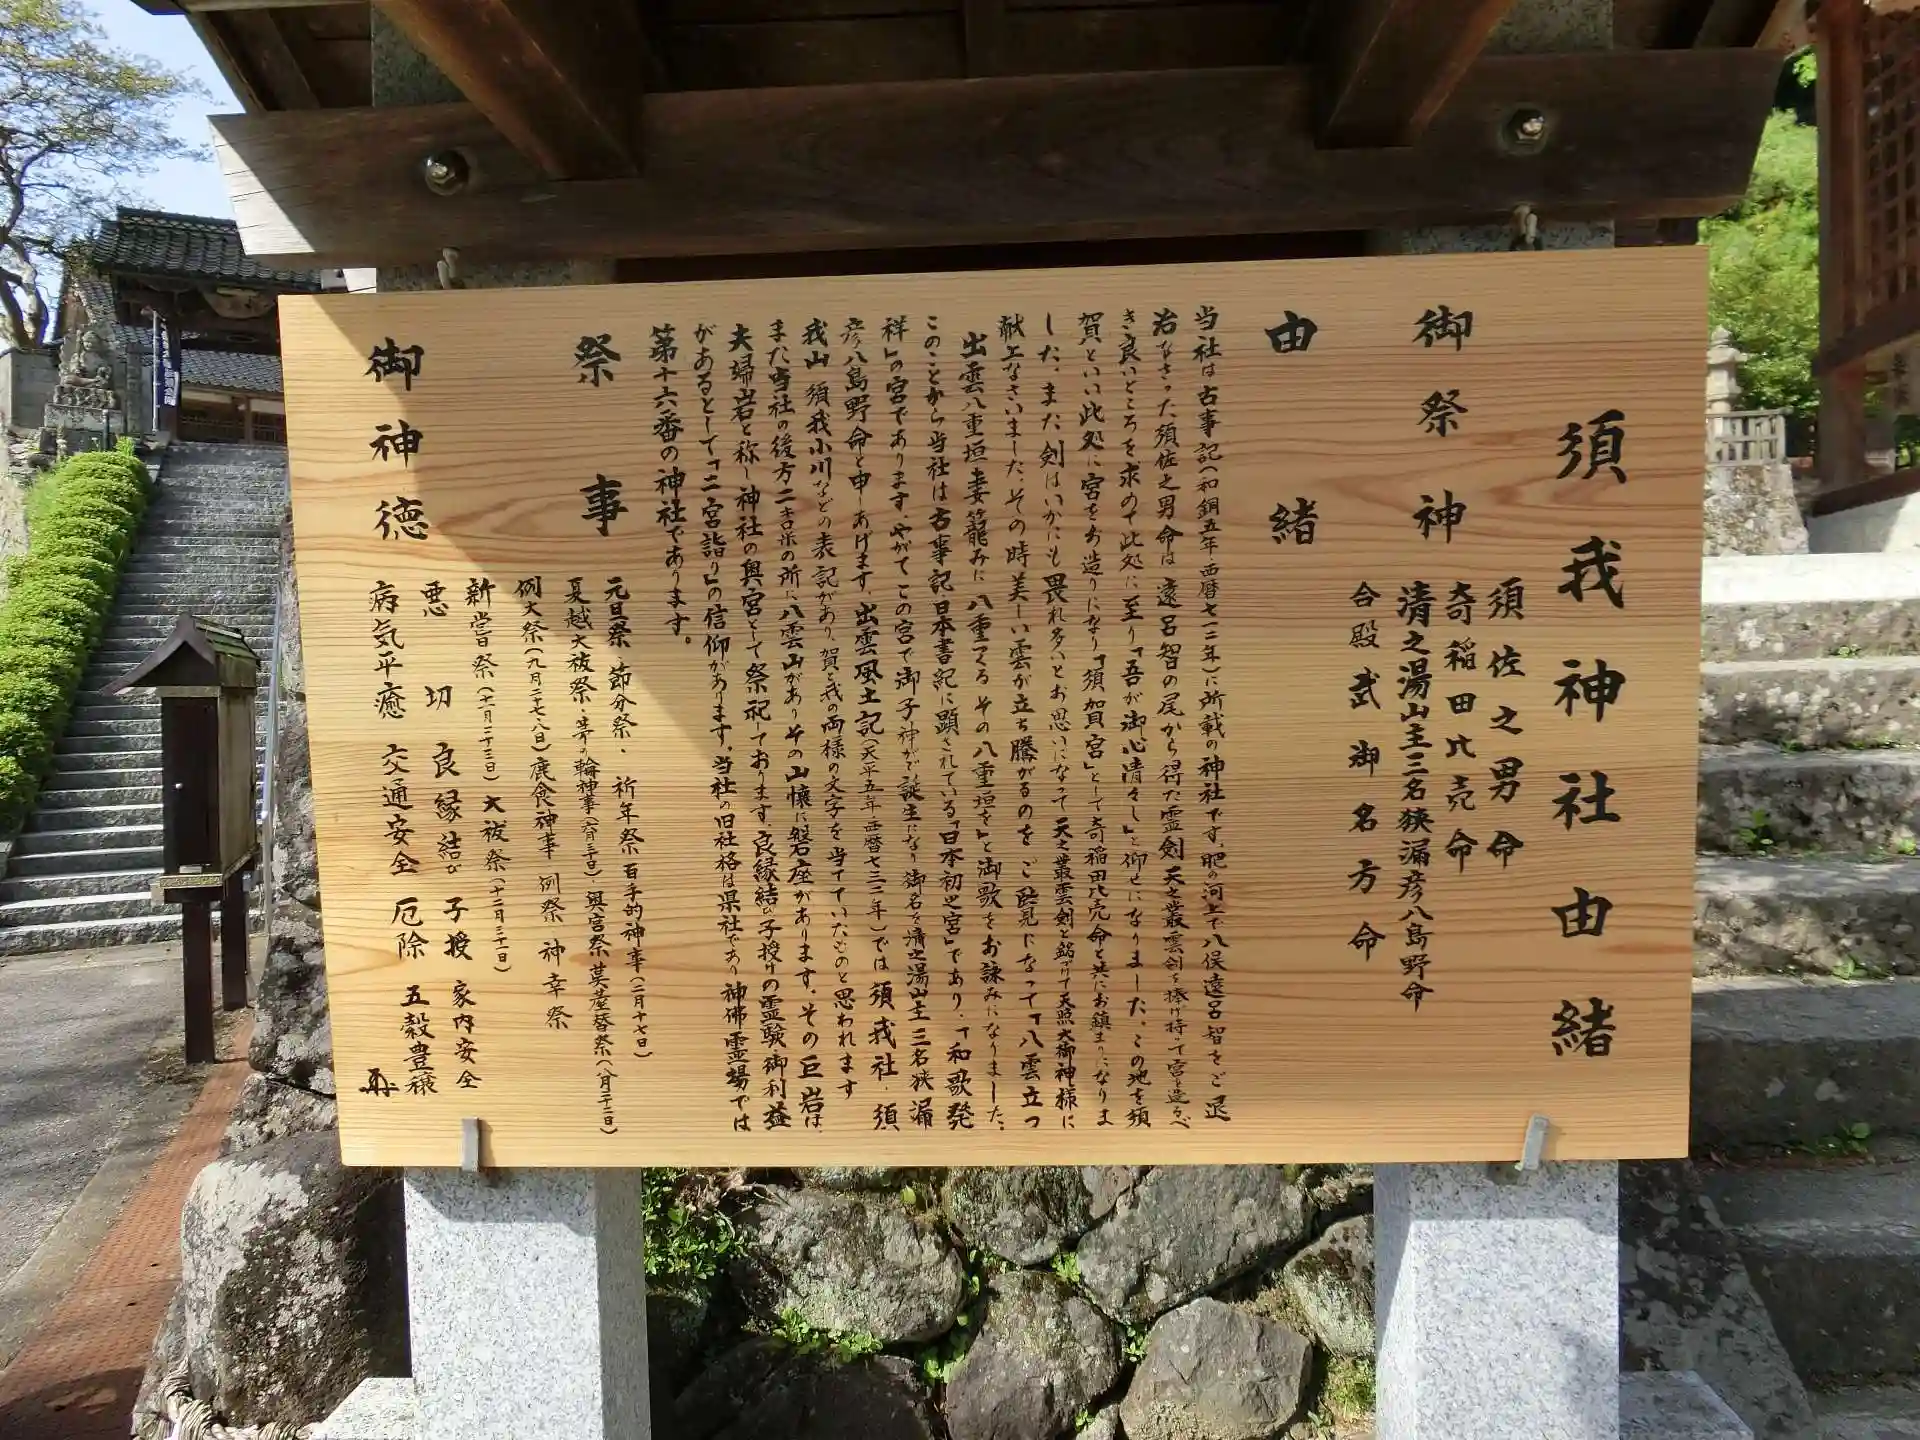 須我神社由緒
御祭神
須佐之男命
奇稲田比売命
清之湯山主三名狭漏彦八島野命
合殿 武御名方命
由緒
当社は古事記(和銅五年・西暦七一二年)に所載の神社です。肥の河上で八俣遠呂智をご退
治なさった須佐之男命は遠呂智の尾から得た霊剣天之叢雲剣を捧げ持って宮を造るべ
き良いところを求めて此処に至り「吾が御心清々し」と仰せになりました。この地を須
賀といい此処に宮をお造りになり「須賀宮」として奇稲田比売命と共にお鎮まりになりま
した。また剣はいかにも畏れ多いとお思いになって天之叢雲剣と銘づけて天照大御神様に
献上なさいました。その時美しい雲が立ち騰がるのをご覧になって「八雲立つ
出雲八重垣妻籠みに八重つくるその八重垣を」と御歌をお詠みになりました。
このことから当社は古事記日本書紀に顕されている「日本初之宮」であり、「和歌発
祥」の宮であります。やがてこの宮で御子神がご誕生になり御名を清之湯山主三名狭漏
彦八島野命と申しあげます。出雲風土記(天平五年・西暦七三三年)では須我社・須
我山 須我小川などの表記があり、賀と我の両様の文字を当てていたものと思われます
また当社の後方二キロ米の所に八雲山がありその山懐に磐座があります。その巨岩は、
夫婦岩と称し神社の奥宮として祭祀しております。良縁結び子授けの霊験御利益
があるとして「二宮詣り」の信仰があります。当社の旧社格は県社であり神佛霊場では
第十六番の神社であります。
祭事
元旦祭・節分祭・祈年祭 百手的神事(二月十七日)
夏越大祓祭・茅の輪神事(六月三十日)・奥宮祭 茣蓙替祭(八月二十二日)
例大祭(九月二十七、八日)鹿食神事 例祭 神幸祭
新嘗祭(十一月二十三日)大祓祭(十二月三十一日)
御神徳
悪切 良縁結び 子授 家内安全
病気平癒 交通安全 厄除 五穀豊穣